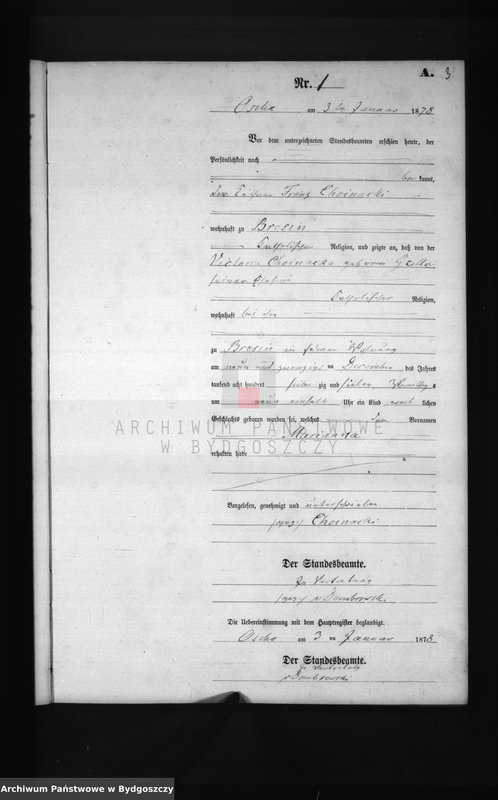 A. 3
Nr. 1
Osche am 3ten Januar 1878
Vor dem unterzeichneten Standesbeamten erschien heute, der
Persönlichkeit nach
be kannt,
der Franz Choinacki
wohnhaft zu Bresin
katholischer Religion, und zeigte an, daß von der
Victoria Choinacka geborene
seiner Ehefrau
katholischer Religion,
wohnhaft bei ihm
zu Bresin in seiner Wohnung
am neun und zwanzigsten Dezember des Jahres
tausend acht hundert sieben zig und sieben, Vormittag s
um neun einhalb Uhr ein Kind weib lichen
Geschlechts geboren worden sei, welches den Vornamen
Marianna
erhalten habe
Vorgelesen, genehmigt und unterschrieben
(gez.) Choinacki
Der Standesbeamte.
In Vertretung
(gez.) v Dombrowski
Die Uebereinstimmung mit dem Hauptregister beglaubigt.
Osche am 3 ten Januar 1878
Der Standesbeamte.
In Vertretung
v Dombrowski
ARCHIWUM PAŃSTWOWE
W BYDGOSZCZY
Archiwum Państwowe w Bydgoszczy